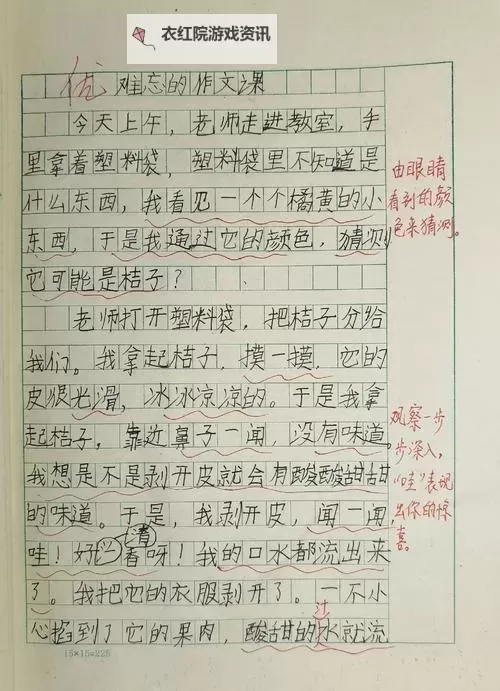 衣红院游戏资讯
优 难忘的作文课
今天上午，老师走进教室，手
里拿着塑料袋，塑料袋里不知道是
什么东西，我看见一个个橘黄的小
东西，于是我通过它的颜色，猜测
它可能是桔子？
由眼睛
看到的颜
色来猜测。
老师打开塑料袋，把桔子分给
我们。我拿起桔子，摸一摸，它的
皮很光滑，冰冰凉凉的。于是我拿
起桔子，靠近鼻子一闻，没有味道。
我想是不是剥开皮就会有酸酸甜甜
的味道。于是，我剥开皮，闻一闻，
哇！好清香呀！我的口水都流出来
了。我把它的衣服剥开了。一不小
心掐到了它的果肉，酸甜的水就流
过
观察一步
步深入，
“哇”表现
出你的惊
喜。
15×15=225